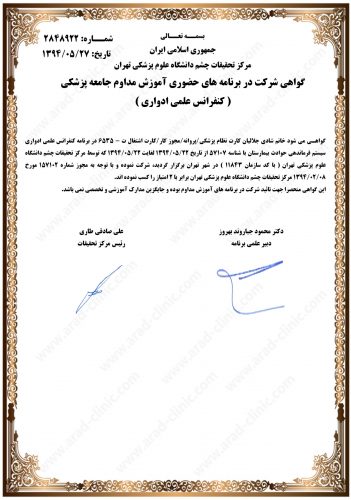 بسمه تعالی
جمهوری اسلامی ایران
شماره: ۲۸۴۸۹۲۲
تاریخ: ۱۳۹۴/۰۵/۲۷
مرکز تحقیقات چشم دانشگاه علوم پزشکی تهران
گواهی شرکت در برنامه های حضوری آموزش مداوم جامعه پزشکی
( کنفرانس علمی ادواری )
گواهی می شود خانم شادی جلالیان کارت نظام پزشکی/پروانه/مجوز کار/کارت اشتغال ت - ۶۵۳۵ در برنامه کنفرانس علمی ادواری
سیستم فرماندهی حوادث بیمارستان با شناسه ۵۷۱۰۷ از تاریخ ۱۳۹۴/۰۵/۲۲ لغایت ۱۳۹۴/۰۵/۲۲ که توسط مرکز تحقیقات چشم دانشگاه
علوم پزشکی تهران ( با کد سازمان ۱۱۸۴۳ ) در شهر تهران برگزار گردید، شرکت نموده و با توجه به مجوز شماره ۱۵۷۱۰۲ مورخ
۱۳۹۴/۰۲/۰۸ مرکز تحقیقات چشم دانشگاه علوم پزشکی تهران برابر با ۲ امتیاز را کسب نموده اند.
این گواهی منحصرا جهت تائید شرکت در برنامه های آموزش مداوم بوده و جایگزین مدارک آموزشی و تخصصی نمی باشد.
دکتر محمود جباروند بهروز
دبیر علمی برنامه
علی صادقی طاری
رئیس مرکز تحقیقات
www.arad-clinic.com